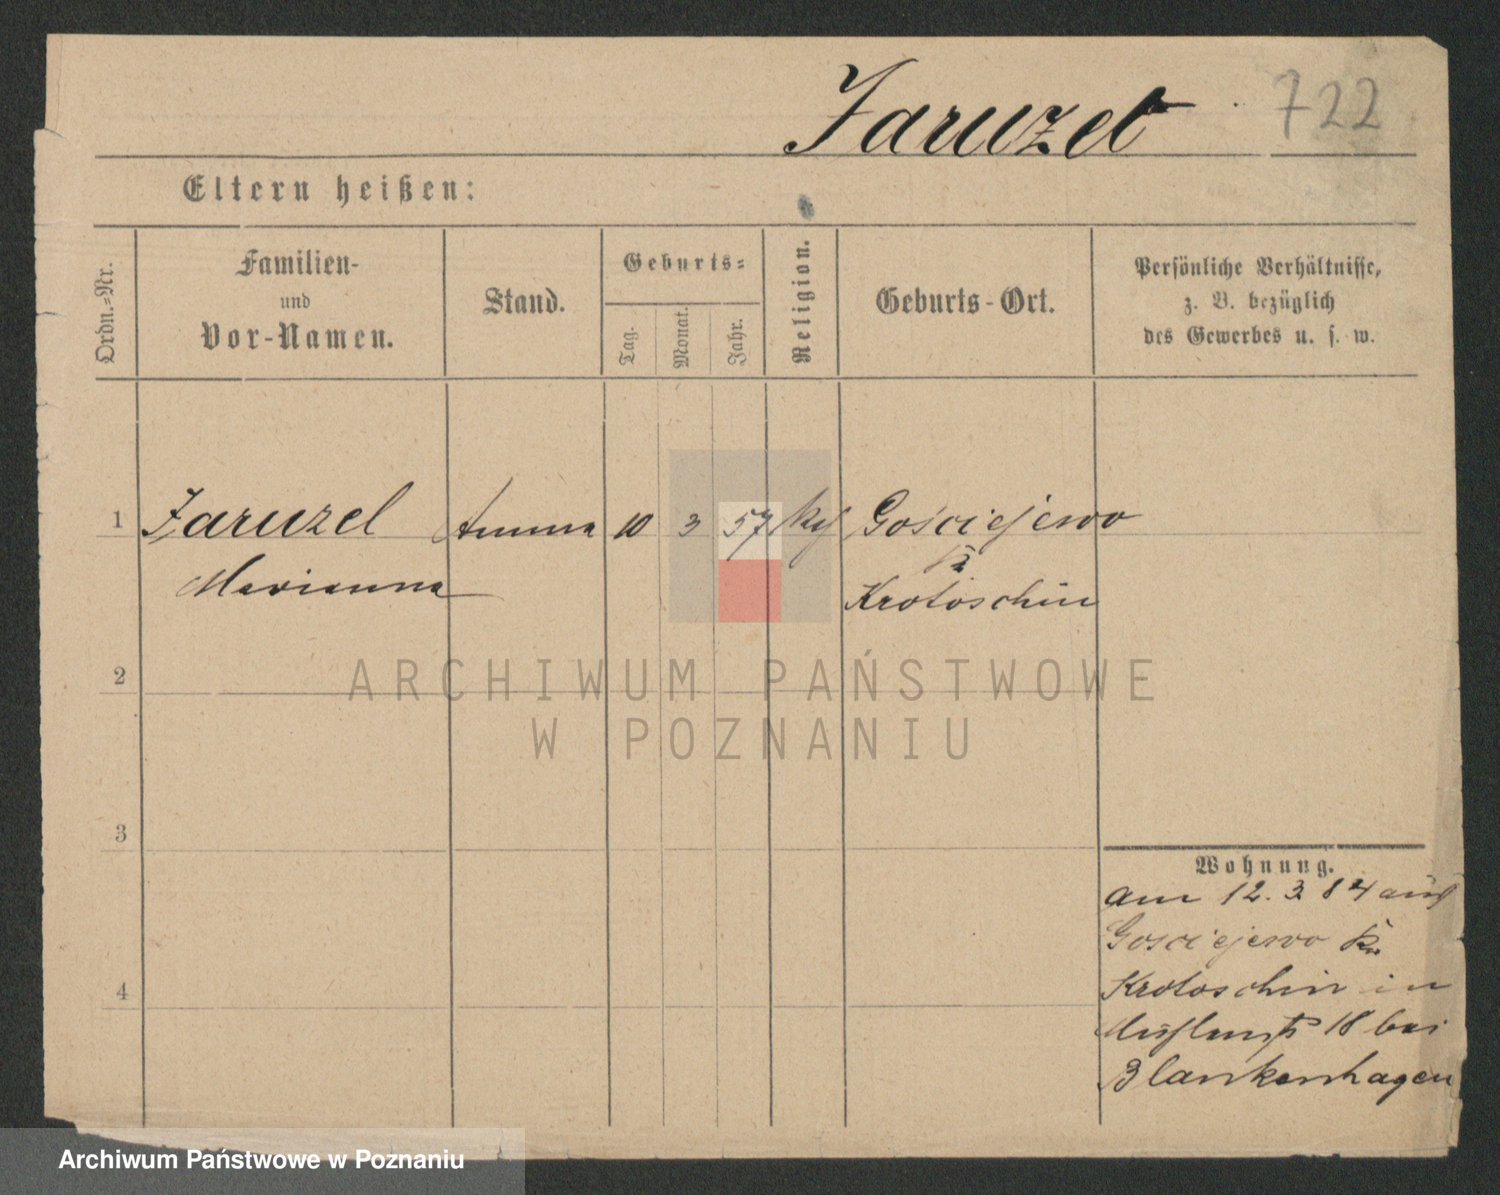 Jaruzel 722
Eltern heißen:
Ordn.-Nr.
Familien-
und
Vor-Namen.
Stand.
Geburts-
Tag.
Monat.
Jahr.
Religion.
Geburts-Ort.
Persönliche Verhältnisse,
z. B. bezüglich
des Gewerbes u. s. w.
1 Jaruzel Amme 10 3 57 kth Gościejewo
Kr
Marianna Krotoschin
2
ARCHIWUM PAŃSTWOWE
W POZNANIU
3
Wohnung.
am 12. 3. 84 aus
Gosciejewo Kr
4
Krotoschin in
18 bei
Blankenhagen
Archiwum Państwowe w Poznaniu